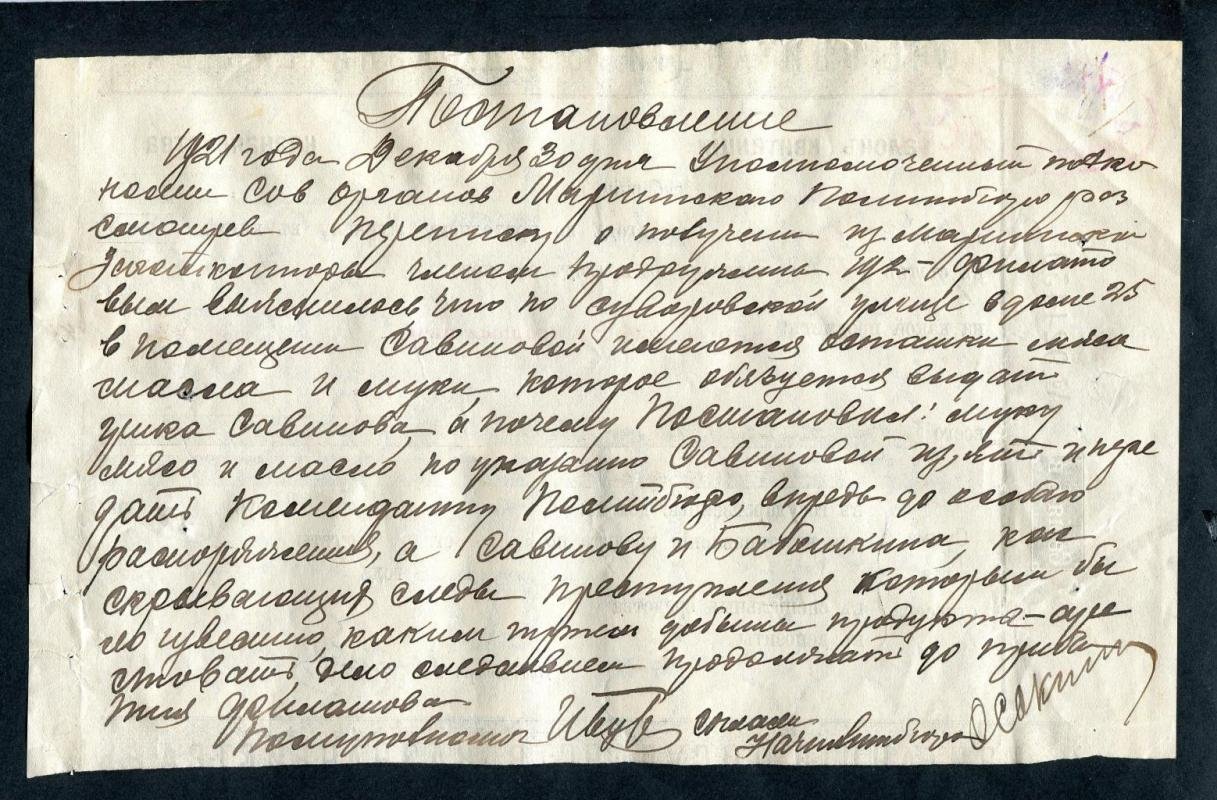 Постановление
1921 года Декабря 30 дня Уполномоченный по эко
номии Сов органов Мариинского Политбюро рас
смотрев переписку о получении из Мариинской
членом продтручины Филато
вым выяснилось что по Суворовской улице в доме 25
в помещении Савиновой имеются остатки мяса
масла и муки, которое обязуется выдать
Савинова, а почему Постановил: муку
мясо и масло по указанию Савиновой изъять и пере
дать Коменданту Политбюро, впредь до особаго
распоряжения, а Савинову и Бабошкина, как
скрывающия следы преступления которым бы
ло известно, каким путем добыты продукта - аре
стовать, дело следствием продолжать до прибы
тия Филатова
согласен
Начполитбюро Осокин